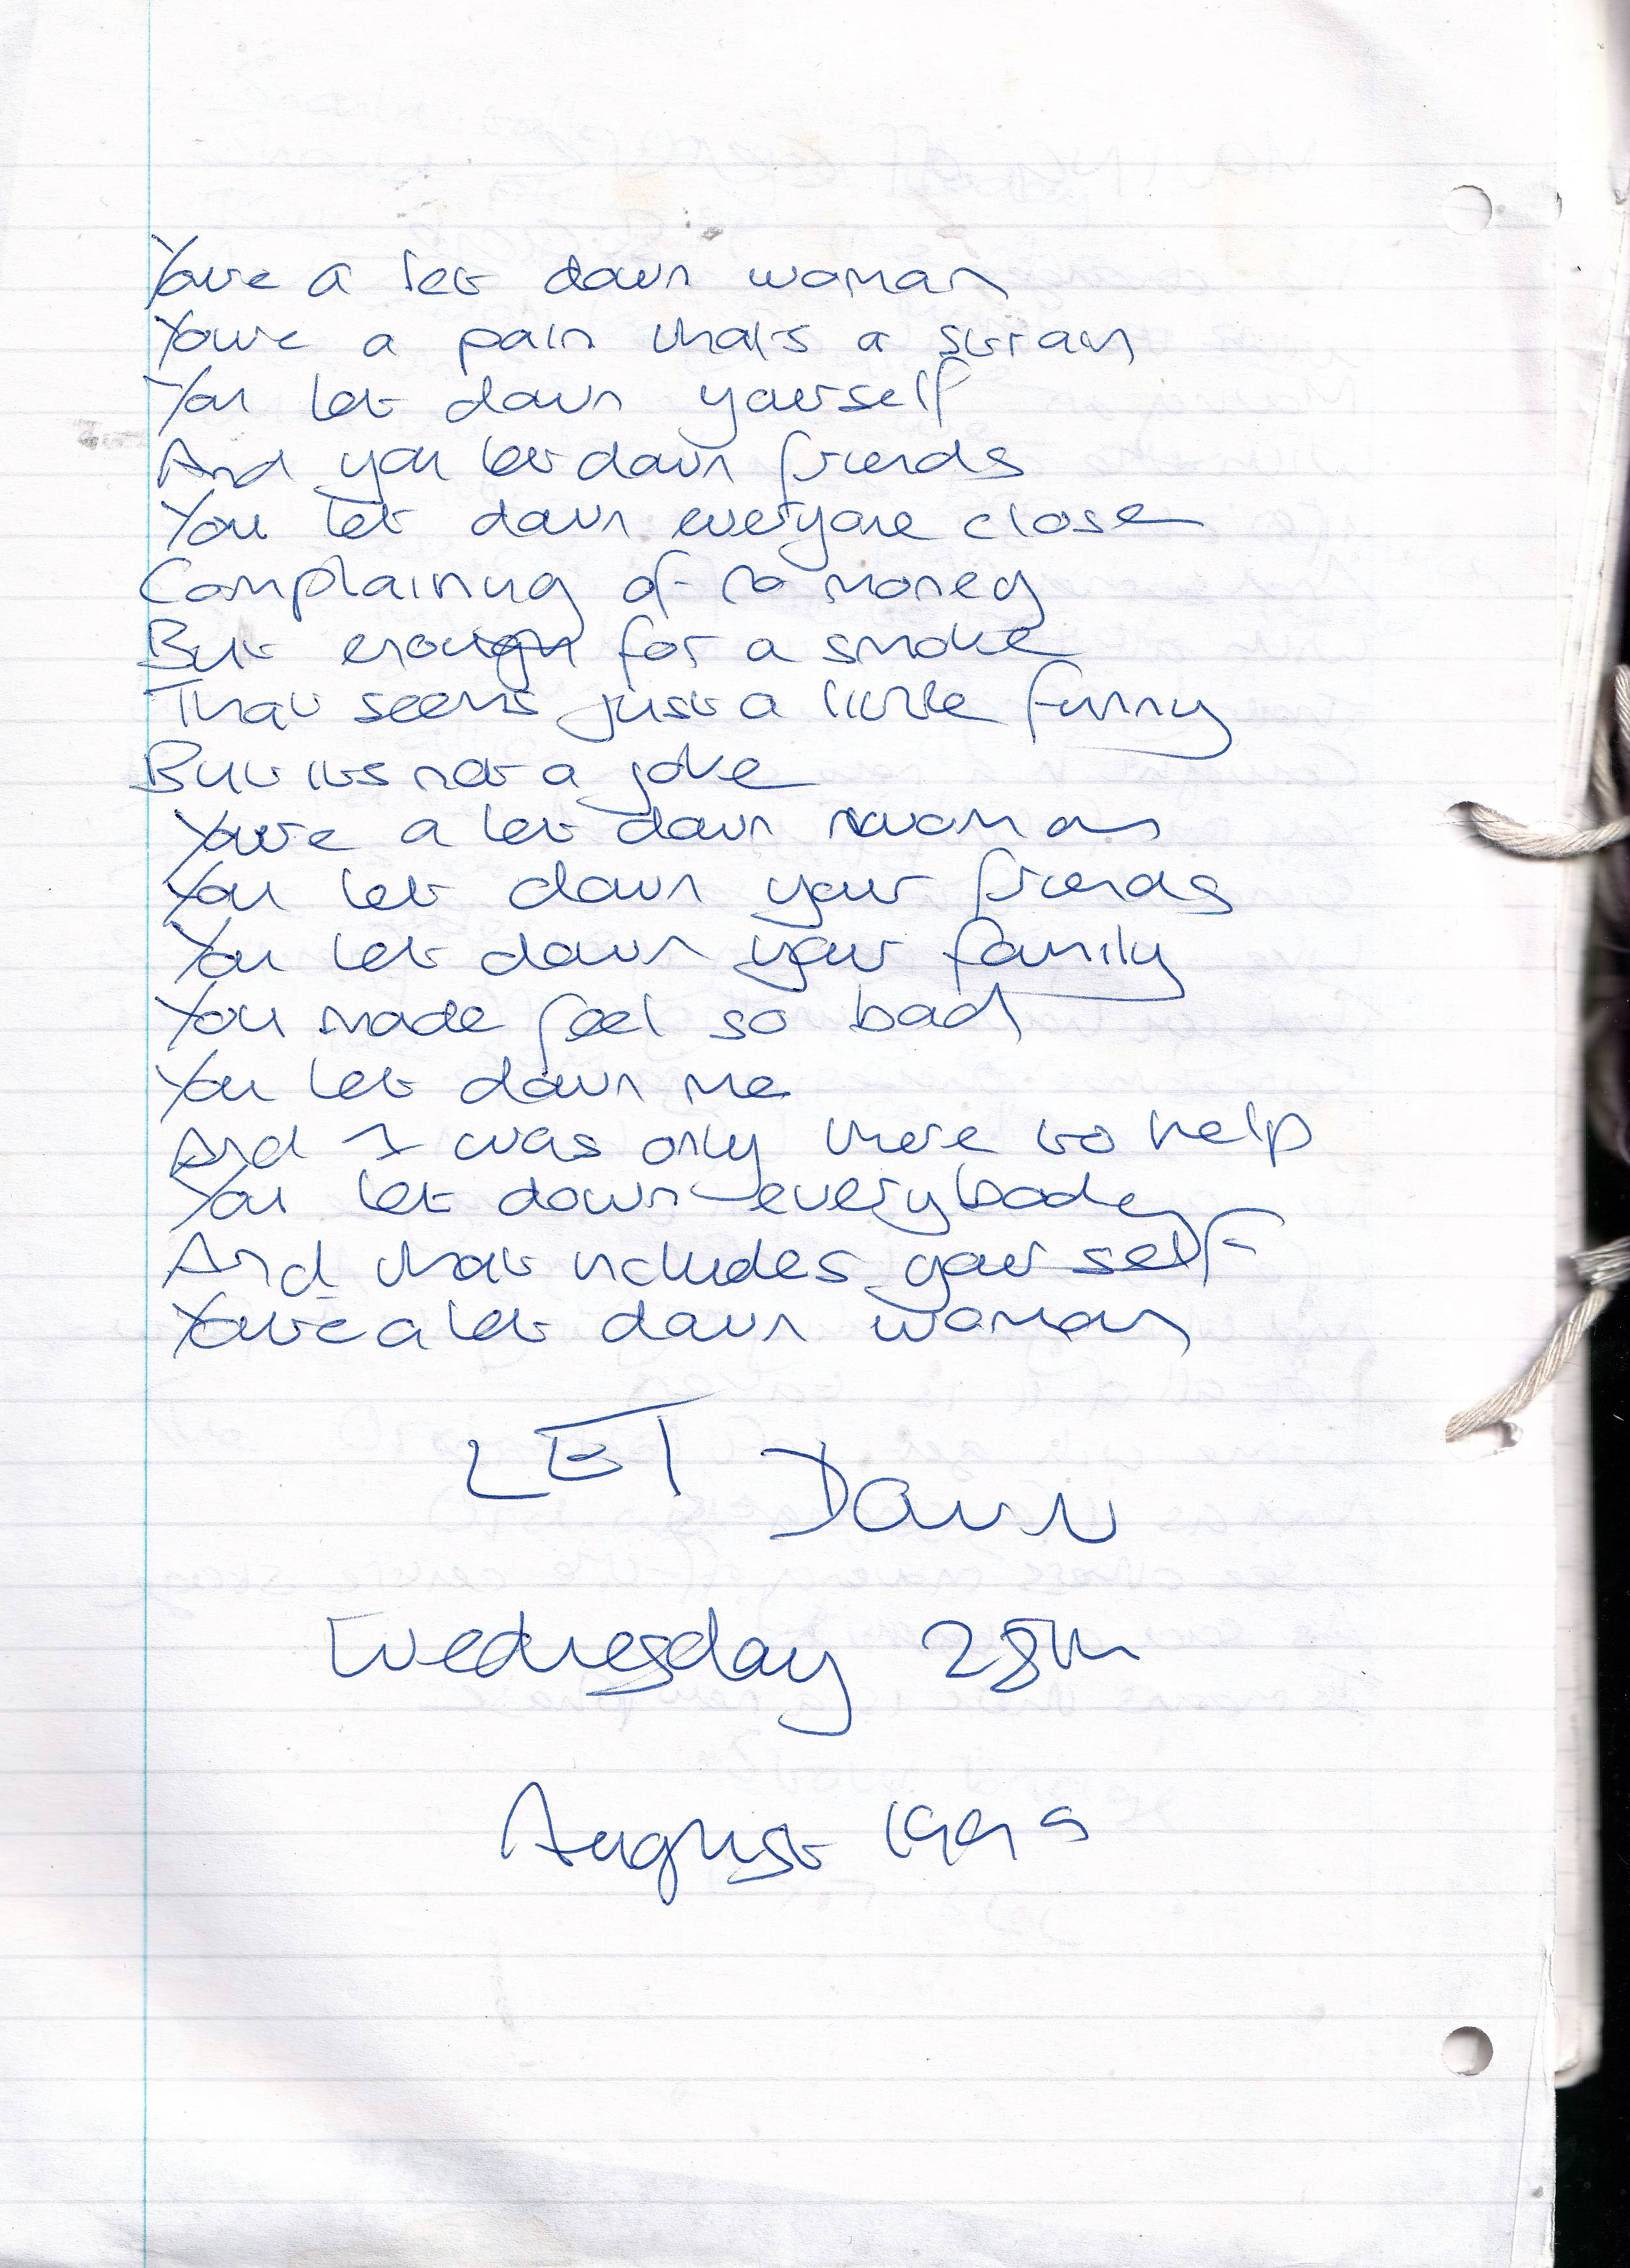 Youre a let down woman
Youre a pain thats a strain
You let down yourself
And you let down friends
You let down everyone close
Complaining of no money
But enough for a smoke
That seems just a little funny
But its not a joke
Youre a let down woman
You let down your friends
You let down your family
You made feel so bad
You let down me
And I was only there to help
You let down everybody
And that includes your self
Youre a let down woman
LET DOWN
Wednesday 28th
August 1999